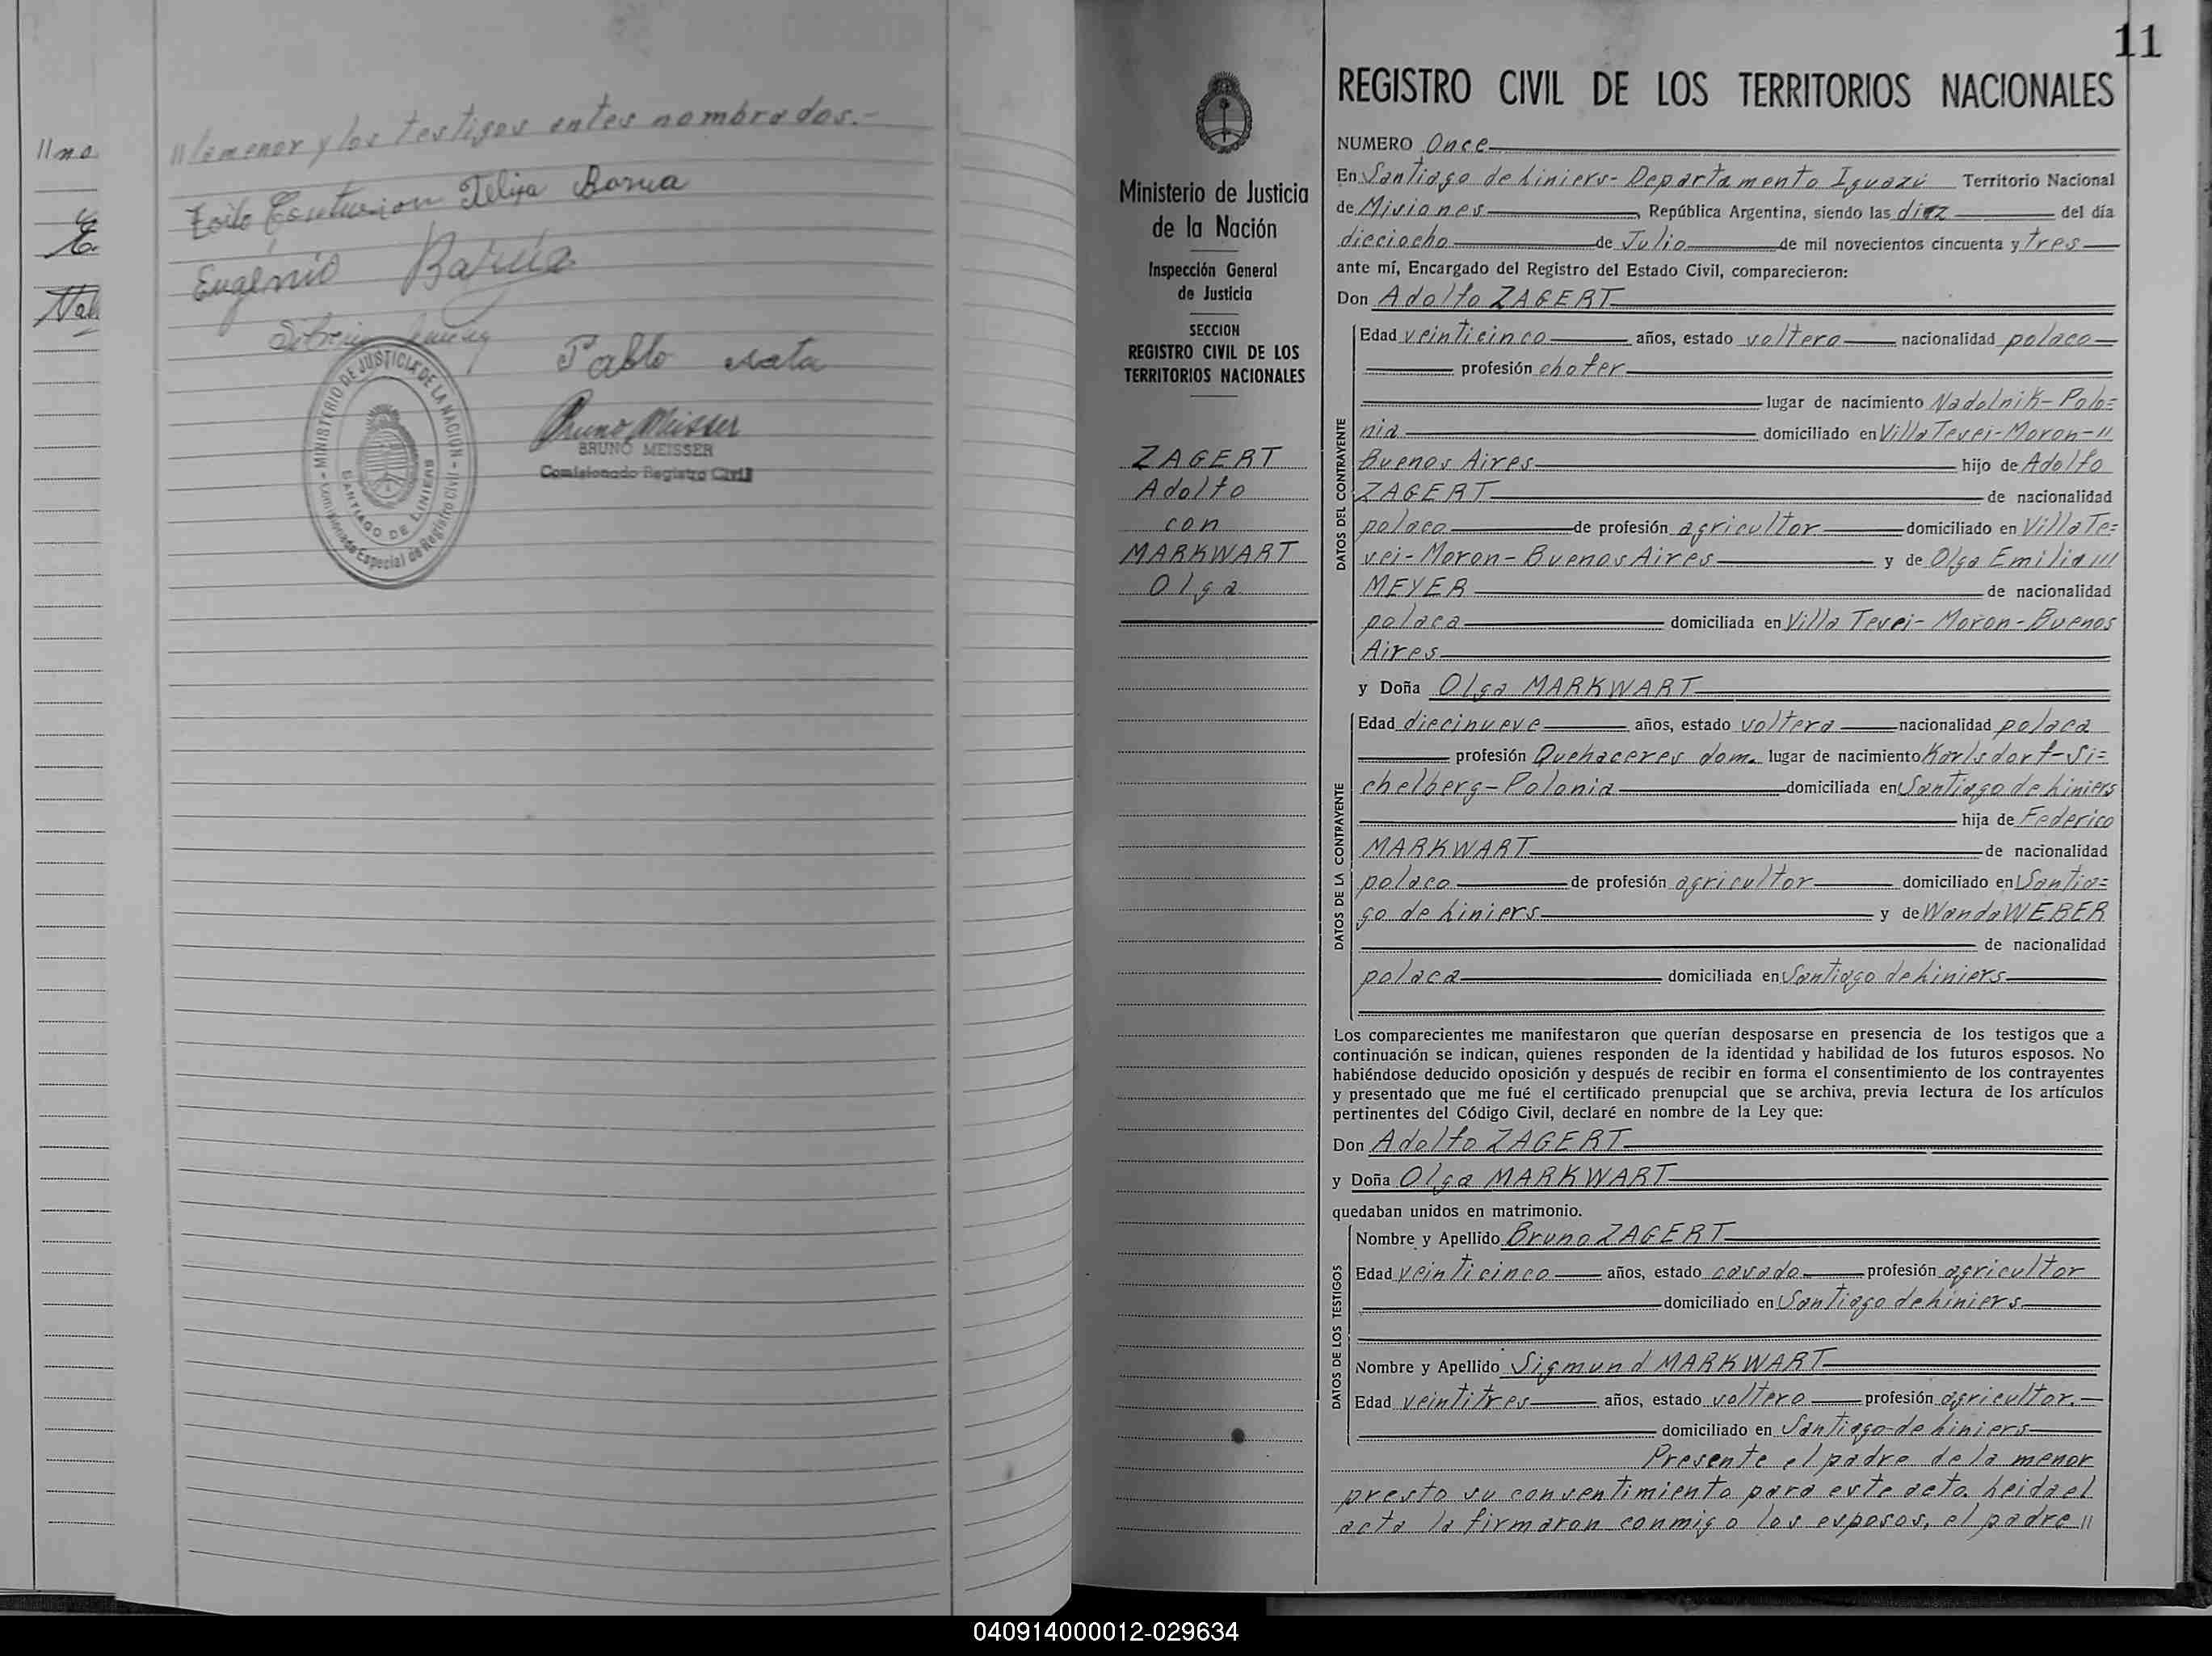 //no
//la menor y los testigos antes nombrados.-
Felisa Barua
Eugenio Barúa
Pablo
Bruno Meisser
BRUNO MEISSER
Comisionado Registro Civil
MINISTERIO DE JUSTICIA DE LA NACION
SANTIAGO DE LINIERS
Comisionado Especial de Registro Civil
11
Ministerio de Justicia
de la Nación
Inspección General
de Justicia
SECCION
REGISTRO CIVIL DE LOS
TERRITORIOS NACIONALES
ZAGERT
Adolfo
con
MARKWART
Olga
REGISTRO CIVIL DE LOS TERRITORIOS NACIONALES
NUMERO Once
En Santiago de Liniers- Departamento Iguazú Territorio Nacional
de Misiones, República Argentina, siendo las diez del día
dieciocho de Julio de mil novecientos cincuenta y tres
ante mí, Encargado del Registro del Estado Civil, comparecieron:
Don Adolfo ZAGERT
DATOS DEL CONTRAYENTE
Edad veinticinco años, estado soltero nacionalidad polaco
profesión chofer
lugar de nacimiento Nadolnik-Polo=
nia domiciliado en Villa Tesei-Moron-//
Buenos Aires hijo de Adolfo
ZAGERT de nacionalidad
polaco de profesión agricultor domiciliado en Villa Te=
sei-Moron-Buenos Aires y de Olga Emilia ///
MEYER de nacionalidad
polaca domiciliada en Villa Tesei-Moron-Buenos
Aires
y Doña Olga MARKWART
DATOS DE LA CONTRAYENTE
Edad diecinueve años, estado soltera nacionalidad polaca
profesión Quehaceres dom. lugar de nacimiento Karlsdorf-Si=
chelberg-Polonia domiciliada en Santiago de Liniers
hija de Federico
MARKWART de nacionalidad
polaco de profesión agricultor domiciliado en Santia=
go de Liniers y de Wanda WEBER
de nacionalidad
polaca domiciliada en Santiago de Liniers
Los comparecientes me manifestaron que querían desposarse en presencia de los testigos que a
continuación se indican, quienes responden de la identidad y habilidad de los futuros esposos. No
habiéndose deducido oposición y después de recibir en forma el consentimiento de los contrayentes
y presentado que me fué el certificado prenupcial que se archiva, previa lectura de los artículos
pertinentes del Código Civil, declaré en nombre de la Ley que:
Don Adolfo ZAGERT
y Doña Olga MARKWART
quedaban unidos en matrimonio.
DATOS DE LOS TESTIGOS
Nombre y Apellido Bruno ZAGERT
Edad veinticinco años, estado casado profesión agricultor
domiciliado en Santiago de Liniers
Nombre y Apellido Sigmund MARKWART
Edad veintitres años, estado soltero profesión agricultor.
domiciliado en Santiago de Liniers
Presente el padre de la menor
presto su consentimiento para este acto. Leida el
acta la firmaron conmigo los esposos, el padre //
040914000012-029634